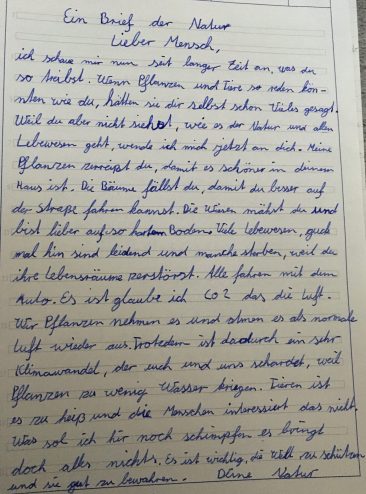 Ein Brief der Natur
Lieber Mensch,
ich schaue mir nun seit langer Zeit an, was du
so treibst. Wenn Pflanzen und Tiere so reden kön-
nten wie du, hätten sie dir selbst schon Vieles gesagt.
Weil du aber nicht siehst, wie es der Natur und allen
Lebewesen geht, wende ich mich jetzt an dich. Meine
Pflanzen zerreißt du, damit es schöner in deinem
Haus ist. Die Bäume fällst du, damit du besser auf
der Straße fahren kannst. Die Wiesen mähst du und
bist lieber auf so hartem Boden. Viele Lebewesen, guck
mal hin sind leidend und manche sterben, weil du
ihre Lebensräume zerstörst. Alle fahren mit dem
Auto. Es ist glaube ich CO2 das die Luft.
Wir Pflanzen nehmen es und atmen es als normale
Luft wieder aus. Trotzdem ist dadurch ein sehr
Klimawandel, der euch und uns schadet, weil
Pflanzen zu wenig Wasser kriegen. Tieren ist
es zu heiß und die Menschen interessiert das nicht.
Was sol ich hir noch schimpfen es bringt
doch alles nichts. Es ist wichtig, die Welt zu schützen
und sie gut zu bewahren. Deine Natur